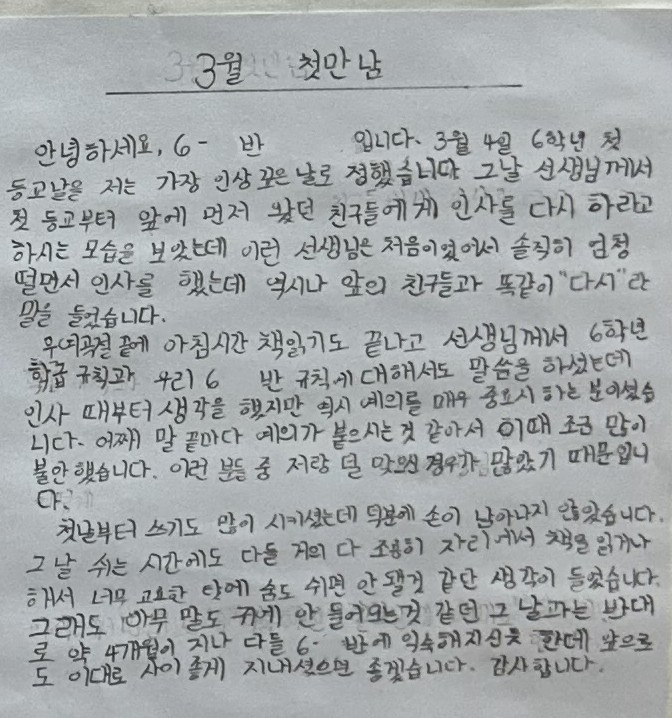 3월 첫만남
안녕하세요, 6- 반 입니다. 3월 4일 6학년 첫
등교날을 저는 가장 인상 깊은 날로 정했습니다 그날 선생님께서
첫 등교부터 앞에 먼저 왔던 친구들에게 인사를 다시 하라고
하시는 모습을 보았는데 이런 선생님은 처음이었어서 솔직히 엄청
떨면서 인사를 했는데 역시나 앞의 친구들과 똑같이 "다시"라
말을 들었습니다.
우여곡절 끝에 아침시간 책읽기도 끝나고 선생님께서 6학년
학급 규칙과 우리 6 반 규칙에 대해서도 말씀을 하셨는데
인사 때부터 생각을 했지만 역시 예의를 매우 중요시 하는 분이셨습
니다. 어째 말 끝마다 예의가 붙으시는 것 같아서 이때 조금 많이
불안했습니다. 이런 분들 중 저랑 덜 맞으신 경우가 많았기 때문입니
다.
첫날부터 쓰기도 많이 시키셨는데 덕분에 손이 남아나지 않았습니다.
그 날 쉬는 시간에도 다들 거의 다 조용히 자리에서 책을 읽거나
해서 너무 고요한 탓에 숨도 쉬면 안 됄것 같단 생각이 들었습니다.
그래도 아무 말도 귀에 안 들어오는것 같던 그 날과는 반대
로 약 4개월이 지나 다들 6- 반에 익숙해지신듯 한데 앞으로
도 이대로 사이 좋게 지내셨으면 좋겠습니다. 감사합니다.